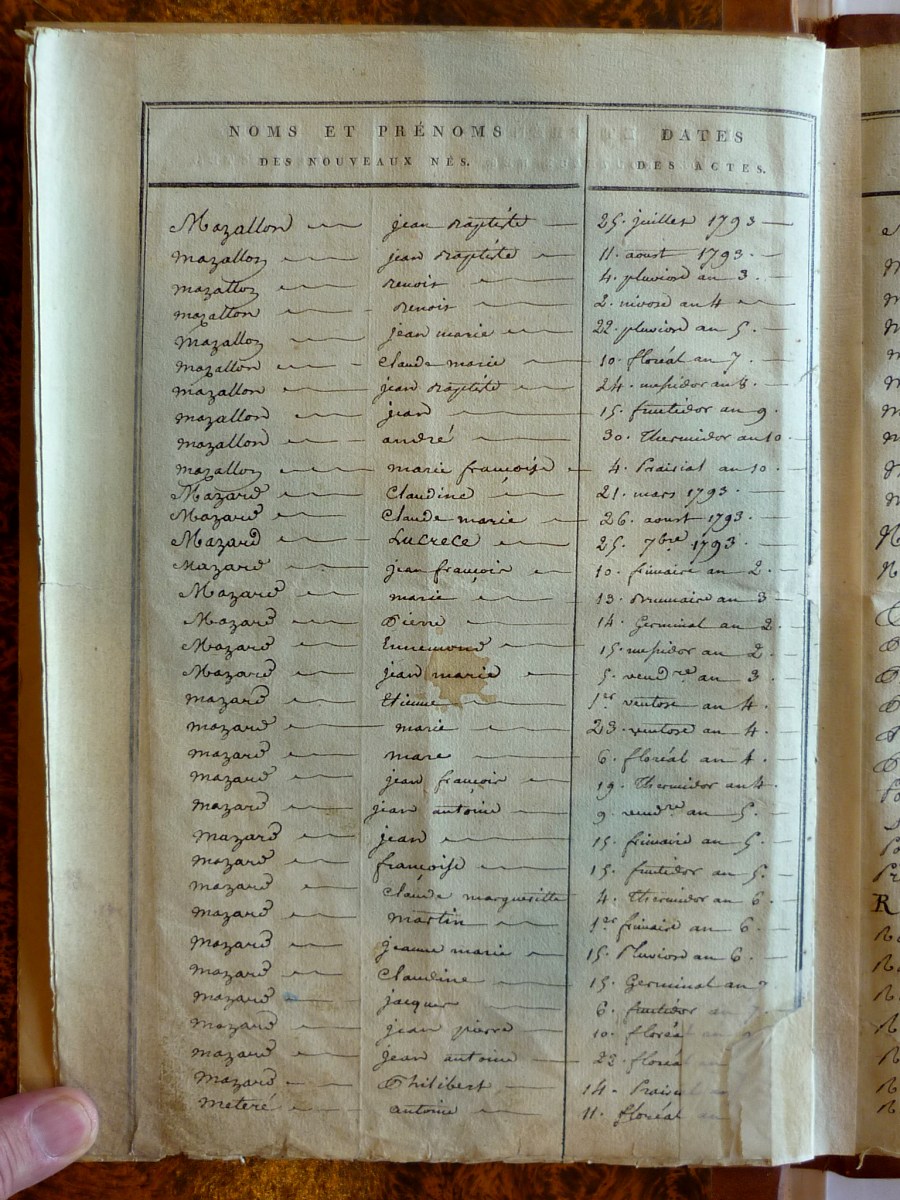 NOMS ET PRÉNOMS DATES
DES NOUVEAUX NÉS. DES ACTES.
Mazallon jean Baptiste 25. juillet 1793
mazallon jean Baptiste 11. aoust 1793.
mazallon Benoit 4. pluviose an 3.
mazallon Benoit 2. nivose an 4
mazallon jean marie 22. pluviose an 5.
mazallon Claude marie 10. floréal an 7.
mazallon jean Baptiste 24. messidor an 8.
mazallon jean 15. fructidor an 9.
mazallon andré 30. thermidor an 10.
mazallon marie françoise 4. Prairial an 10.
Mazard Claudine 21. mars 1793.
Mazard Claude marie 26. aoust 1793.
Mazard Lucrece 25. 7bre 1793.
Mazard jean françois 10. frimaire an 2.
Mazard marie 13. Brumaire an 3
Mazard Pierre 14. Germinal an 2.
Mazard Ennemond 15. messidor an 2.
Mazard jean marie 5. vendre an 3.
mazard Etienne 1er ventose an 4.
mazard marie 23 ventose an 4.
mazard marc 6. floréal an 4.
mazard jean françois 19. thermidor an 4.
mazard jean antoine 9. vendre an 5.
mazard jean 15. frimaire an 5.
mazard françoise 15. fructidor an 5.
mazard claude margueritte 4. thermidor an 6.
mazard martin 1er frimaire an 6.
mazard jeanne marie 15. Pluviose an 6.
mazard Claudine 15. Germinal an 7
mazard jacques 6. fructidor an 7.
mazard jean pierre 10. floréal
mazard jean antoine 22. floréal
mazard Philibert 14. Prairial
meteré antoine 11. floréal an
R